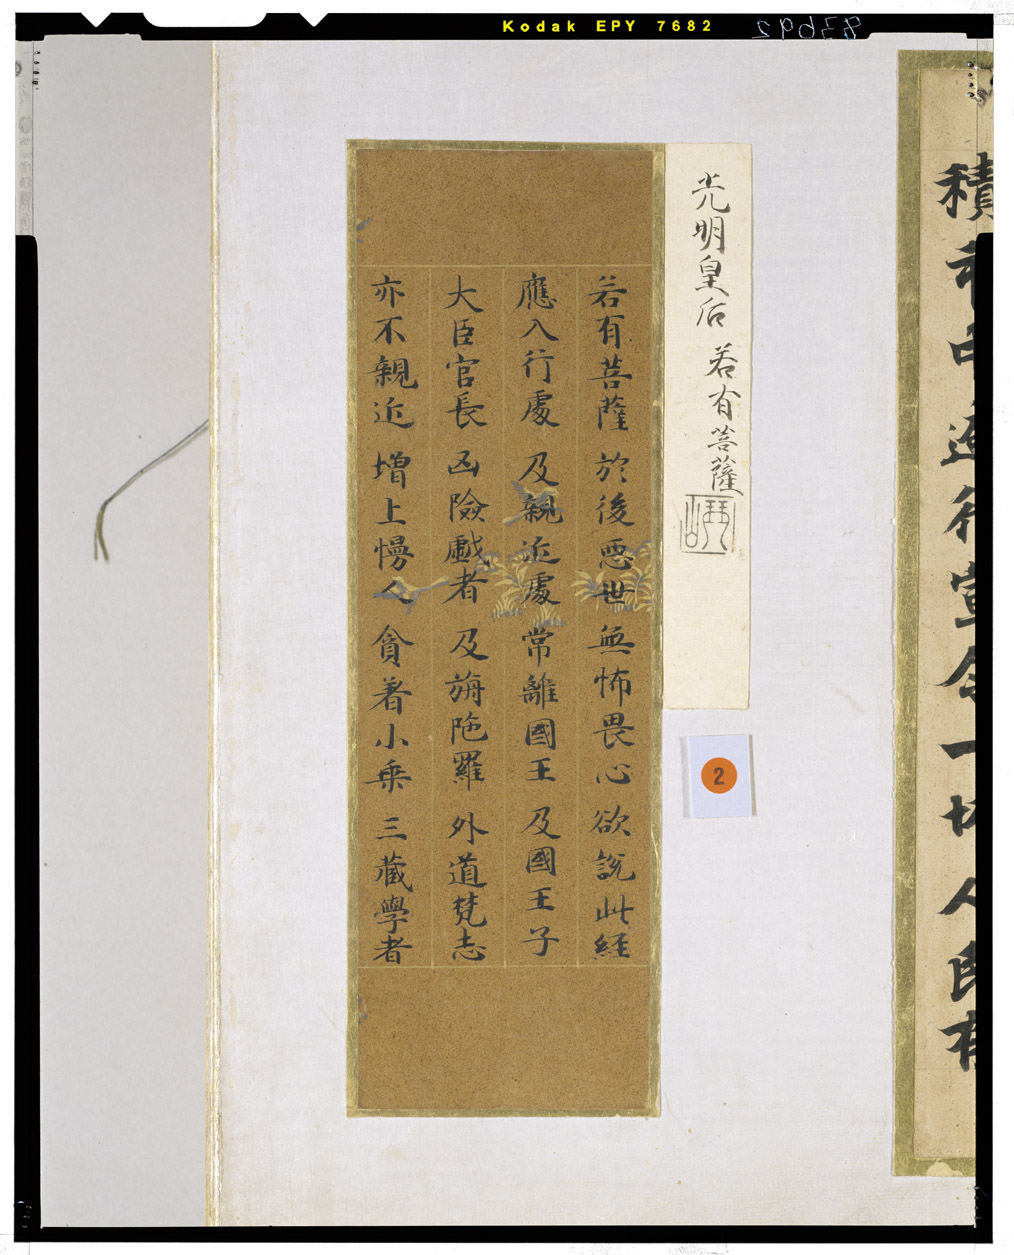 Kodak EPY 7682
83692
光明皇后 若有菩薩
若有菩薩 於後惡世 無怖畏心 欲說此経
應入行處 及親近處 常離國王 及國王子
大臣官長 凶險戯者 及旃陁羅 外道梵志
亦不親近 增上慢人 貪著小乗 三藏學者
2
積
逆行宣令一切人民有